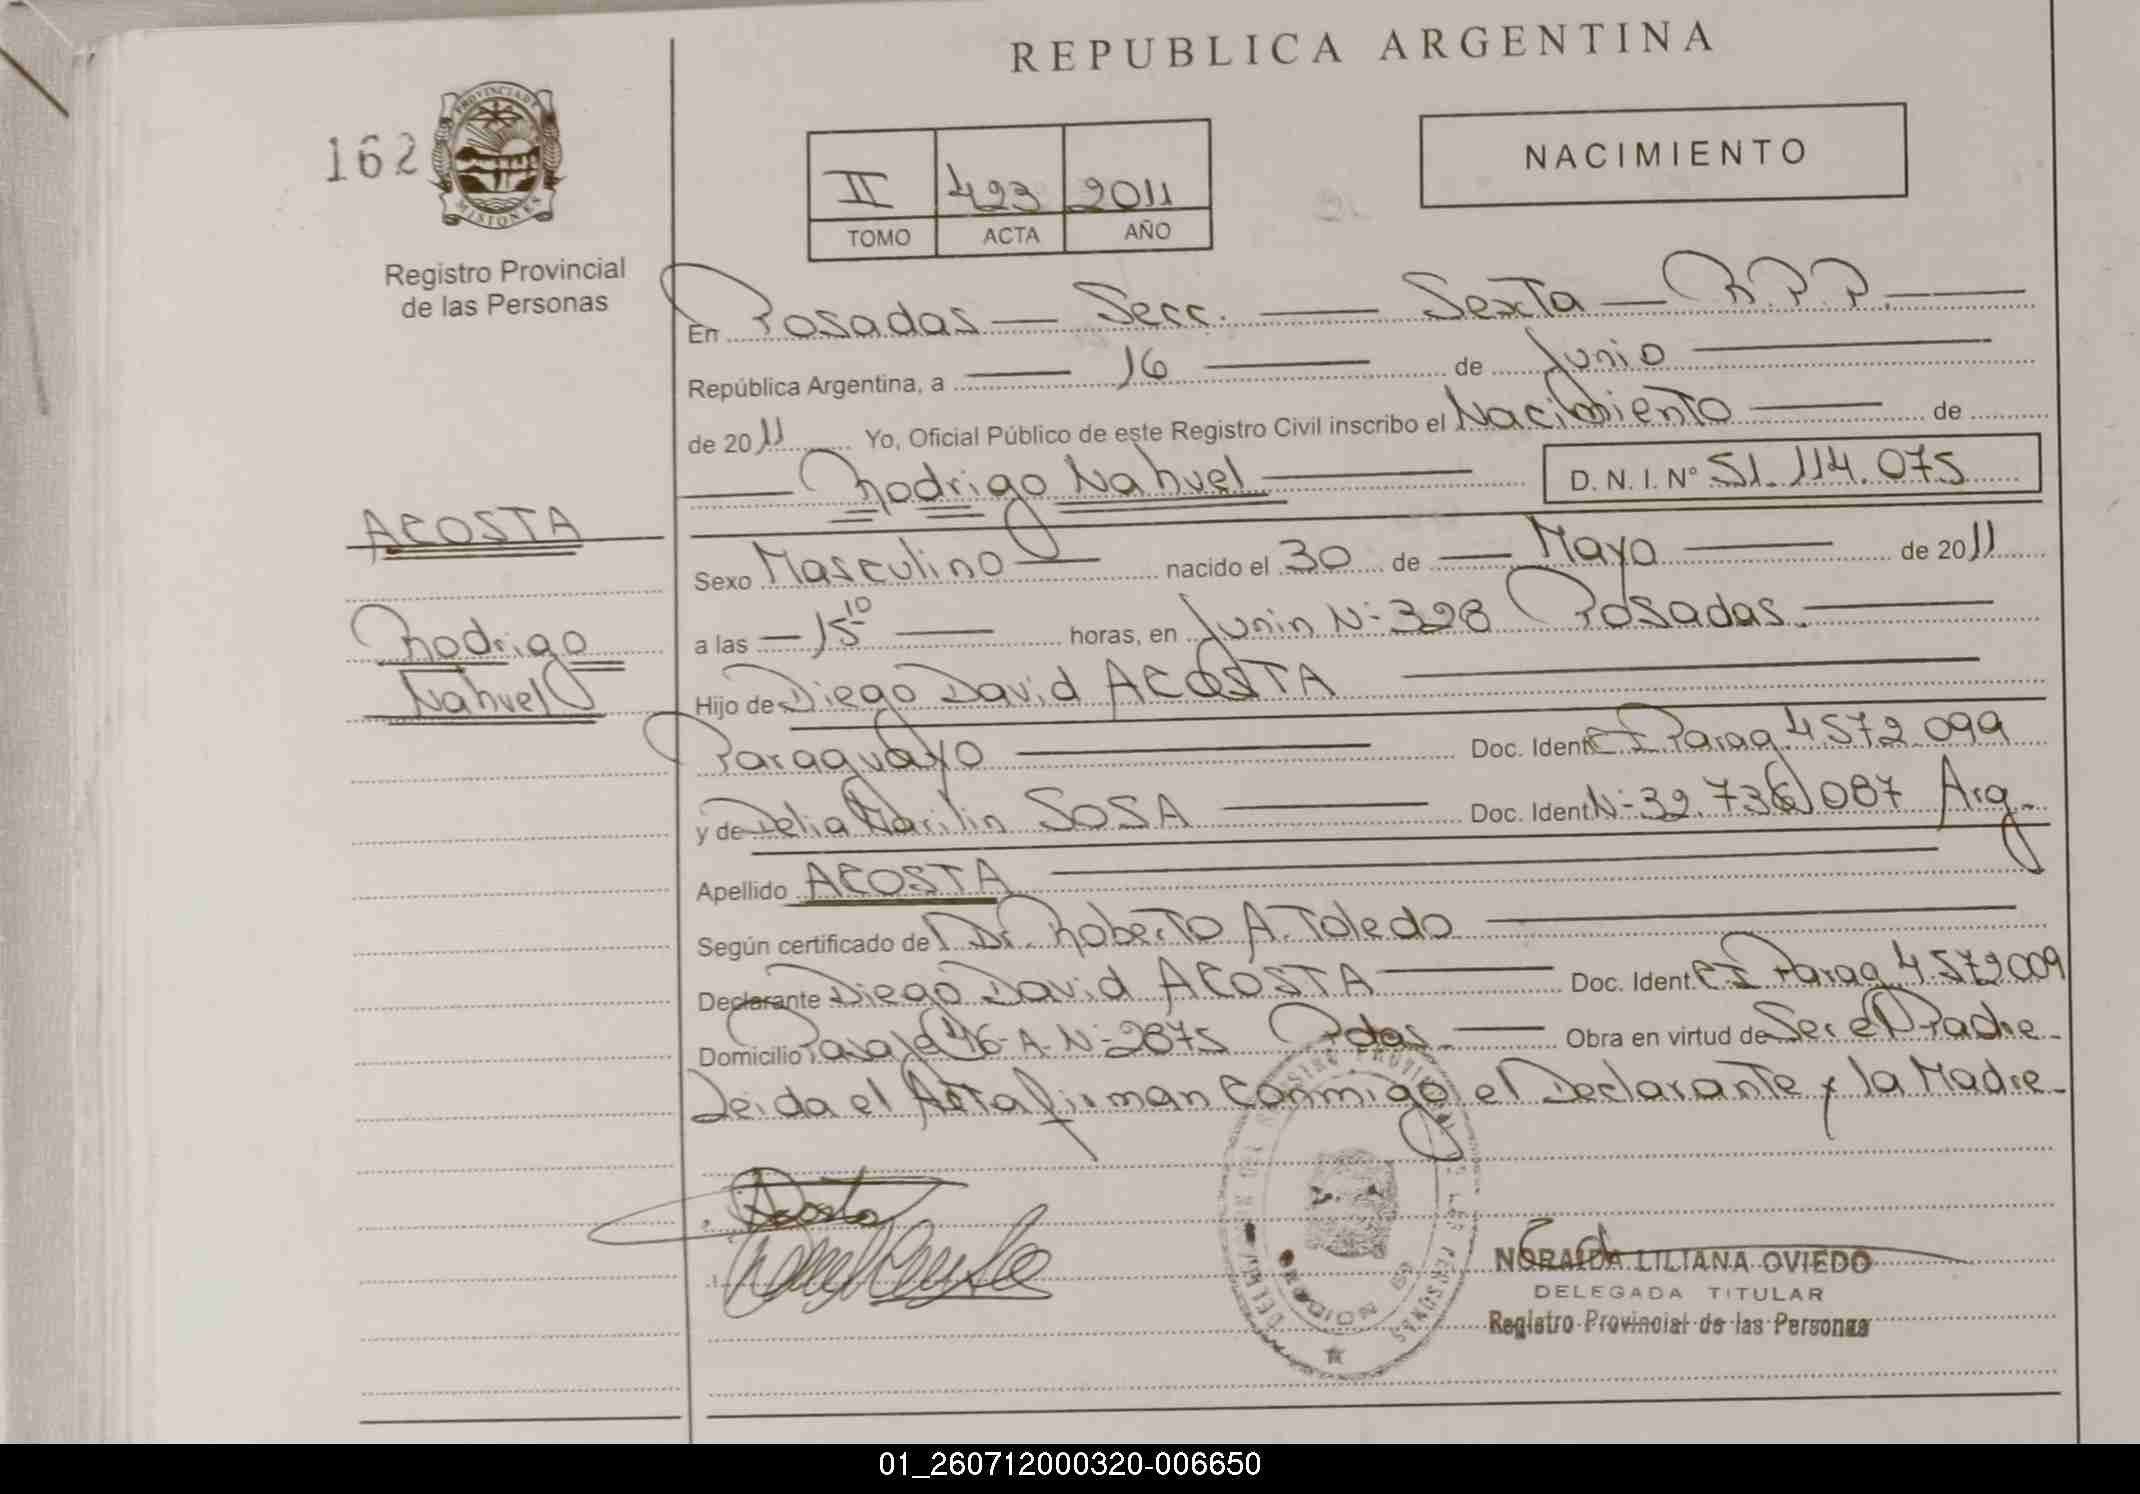 REPUBLICA ARGENTINA
162
PROVINCIA DE
MISIONES
Registro Provincial
de las Personas
II 423 2011
TOMO ACTA AÑO
NACIMIENTO
En Posadas — Secc. — Sexta — R.P.P. —
República Argentina, a — 16 — de Junio —
de 2011 Yo, Oficial Público de este Registro Civil inscribo el Nacimiento — de
— Rodrigo Nahuel — D. N. I. Nº 51.114.075
ACOSTA
Rodrigo
Nahuel
Sexo Masculino — nacido el 30 de — Mayo — de 2011
a las — 15 10 — horas, en Junin N- 328 Posadas. —
Hijo de Diego David ACOSTA —
Paraguayo — Doc. Ident. CI Parag 4572.099
y de Delia Marilin SOSA — Doc. Ident. N- 32.736.087 Arg.
Apellido ACOSTA —
Según certificado de Dr. Roberto A. Toledo —
Declarante Diego David ACOSTA — Doc. Ident. CI Parag 4.572009
Domicilio Pasaje 46-A-N-2875 Pdas. — Obra en virtud de Ser el Padre-
Leida el Acta firman Conmigo el Declarante y la Madre-
Acosta
NORAIDA LILIANA OVIEDO
DELEGADA TITULAR
Registro Provincial de las Personas
01_260712000320-006650